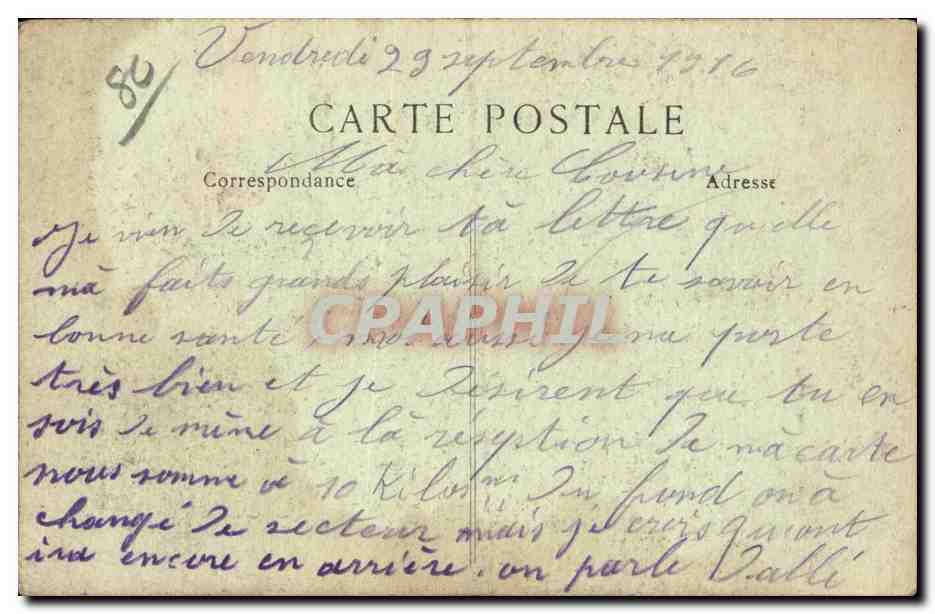 86
Vendredi 29 septembre 1916
CARTE POSTALE
Ma chère Cousine
Correspondance Adresse
Je vien de reçevoir tà lettre qu'elle
mà faits grands plaisir de te savoir en
bonne santé moi aussi je me porte
très bien et je désirent que tu en
sois de même à là réseption de mà carte
nous somme à 10 Kilos du on à
changé de secteur mais je crois qu'ont
ira encore en arrière. on parle d'allé
CPAPHIL